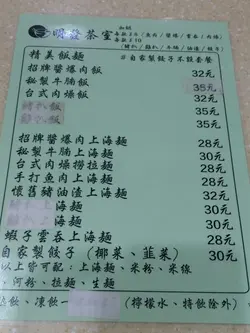 明發茶室
加餸
精美飯麵
#自家製餃子不設套餐
招牌醬爆肉飯 32元
秘製牛腩飯 35元
台式肉燥飯 32元
35元
35元
招牌醬爆肉上海麵 28元
秘製牛腩上海麵 30元
台式肉燥撈拉麵 28元
手打魚肉上海麵 28元
懷舊豬油渣上海麵 28元
上海麵 30元
上海麵 30元
蝦子雲吞上海麵 28元
自家製餃子(椰菜、韮菜) 30元
以上皆可配:上海麵、米粉、米線
、河粉、拉麵、生麵
熱飲、凍飲一 (檸檬水、特飲除外)